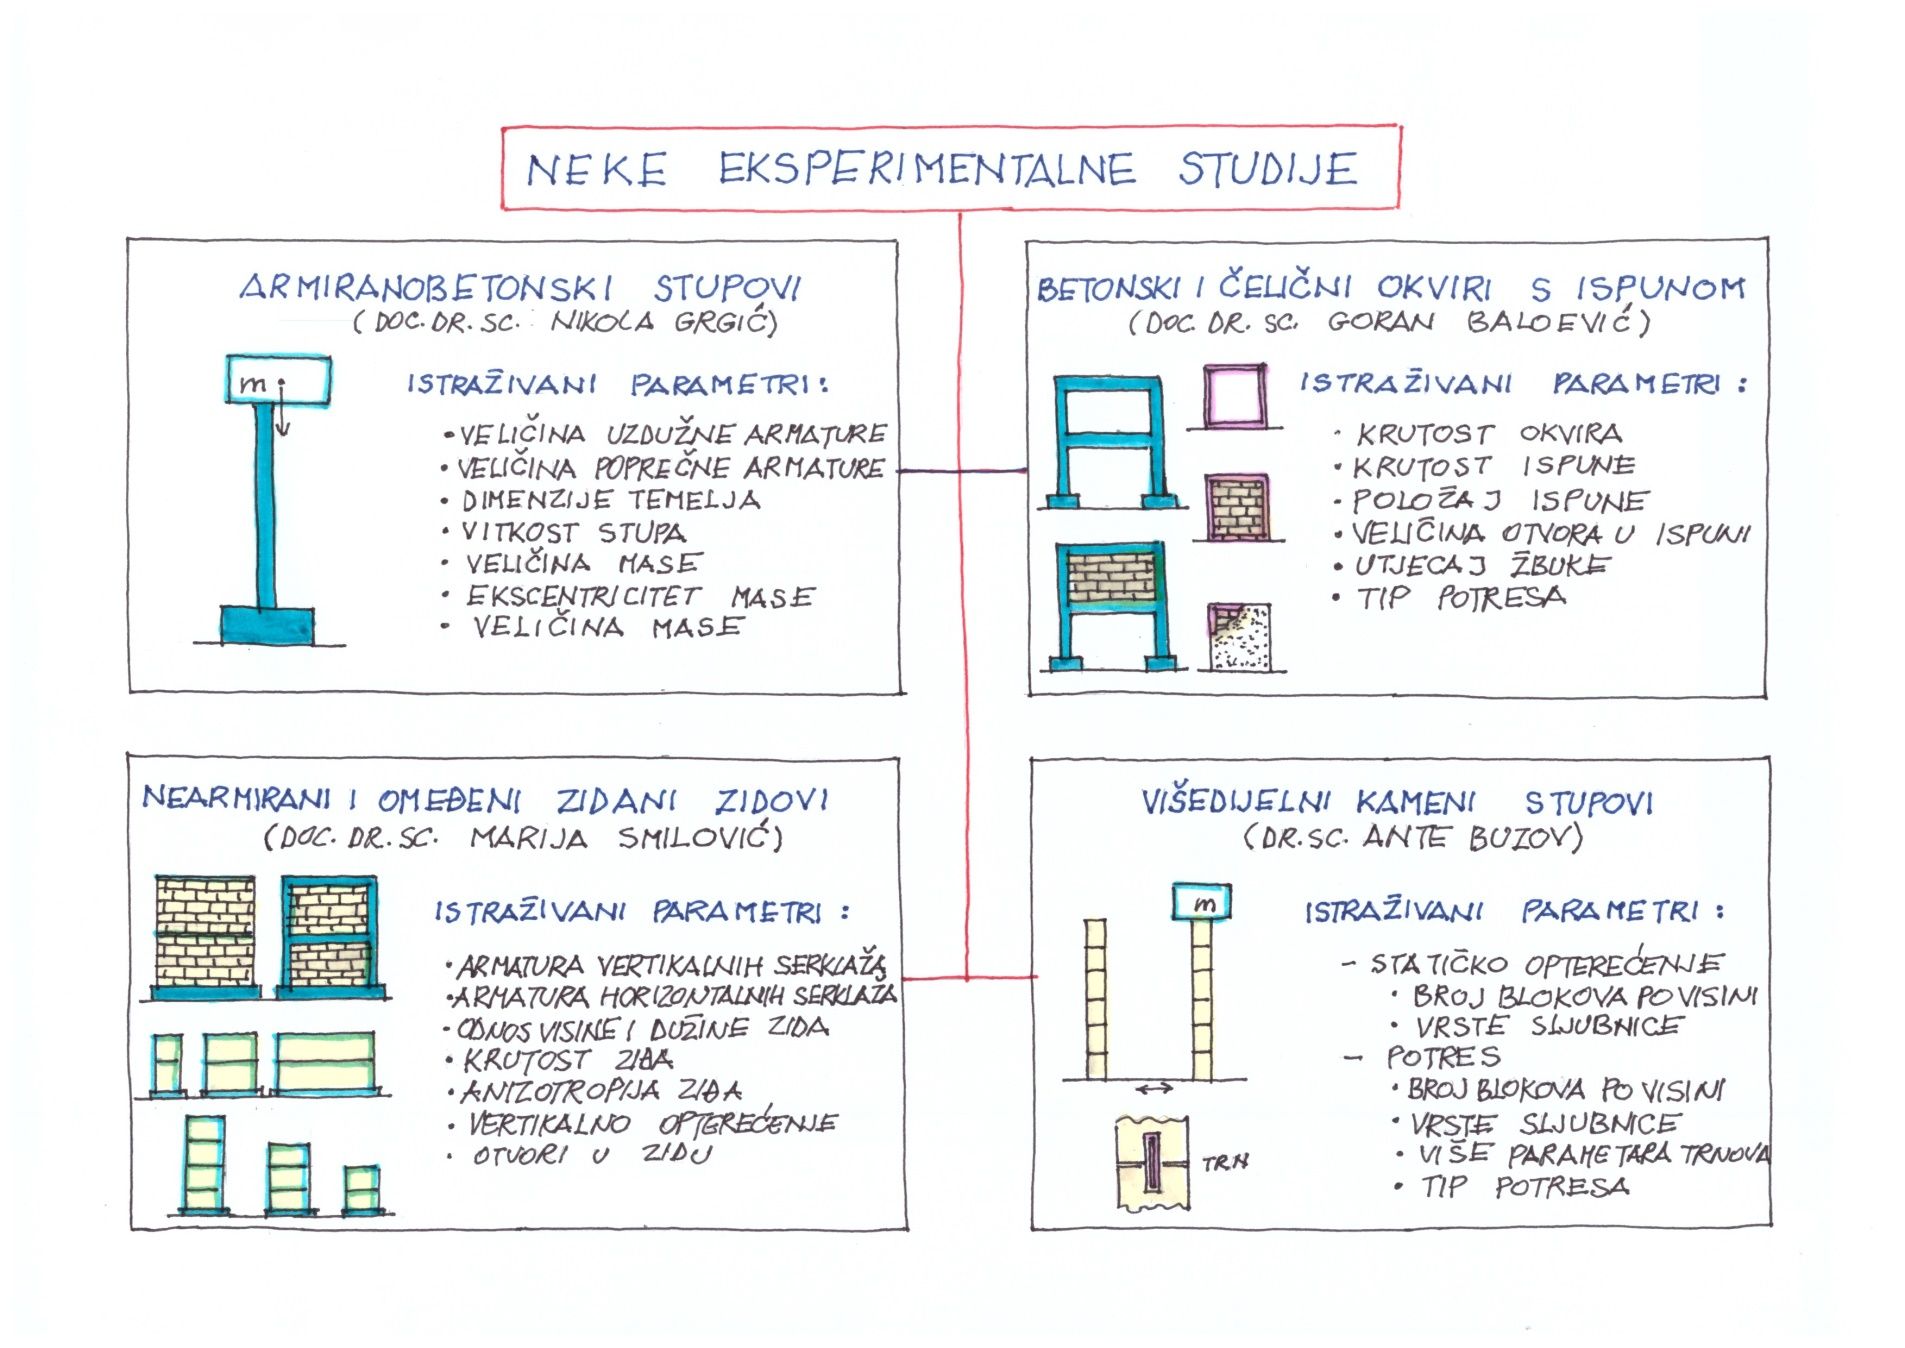 NEKE EKSPERIMENTALNE STUDIJE
ARMIRANOBETONSKI STUPOVI
(DOC. DR. SC. NIKOLA GRGIĆ)
m
ISTRAŽIVANI PARAMETRI:
• VELIČINA UZDUŽNE ARMATURE
• VELIČINA POPREČNE ARMATURE
• DIMENZIJE TEMELJA
• VITKOST STUPA
• VELIČINA MASE
• EKSCENTRICITET MASE
• VELIČINA MASE
BETONSKI I ČELIČNI OKVIRI S ISPUNOM
(DOC. DR. SC. GORAN BALOEVIĆ)
ISTRAŽIVANI PARAMETRI:
• KRUTOST OKVIRA
• KRUTOST ISPUNE
• POLOŽAJ ISPUNE
• VELIČINA OTVORA U ISPUNI
• UTJECAJ ŽBUKE
• TIP POTRESA
NEARMIRANI I OMEĐENI ZIDANI ZIDOVI
(DOC. DR. SC. MARIJA SMILOVIĆ)
ISTRAŽIVANI PARAMETRI:
• ARMATURA VERTIKALNIH SERKLAŽA
• ARMATURA HORIZONTALNIH SERKLAŽA
• ODNOS VISINE I DUŽINE ZIDA
• KRUTOST ZIDA
• ANIZOTROPIJA ZIDA
• VERTIKALNO OPTEREĆENJE
• OTVORI U ZIDU
VIŠEDIJELNI KAMENI STUPOVI
(DR. SC. ANTE BUZOV)
m
TRN
ISTRAŽIVANI PARAMETRI:
– STATIČKO OPTEREĆENJE
• BROJ BLOKOVA PO VISINI
• VRSTE SLJUBNICE
– POTRES
• BROJ BLOKOVA PO VISINI
• VRSTE SLJUBNICE
• VIŠE PARAMETARA TRNOVA
• TIP POTRESA